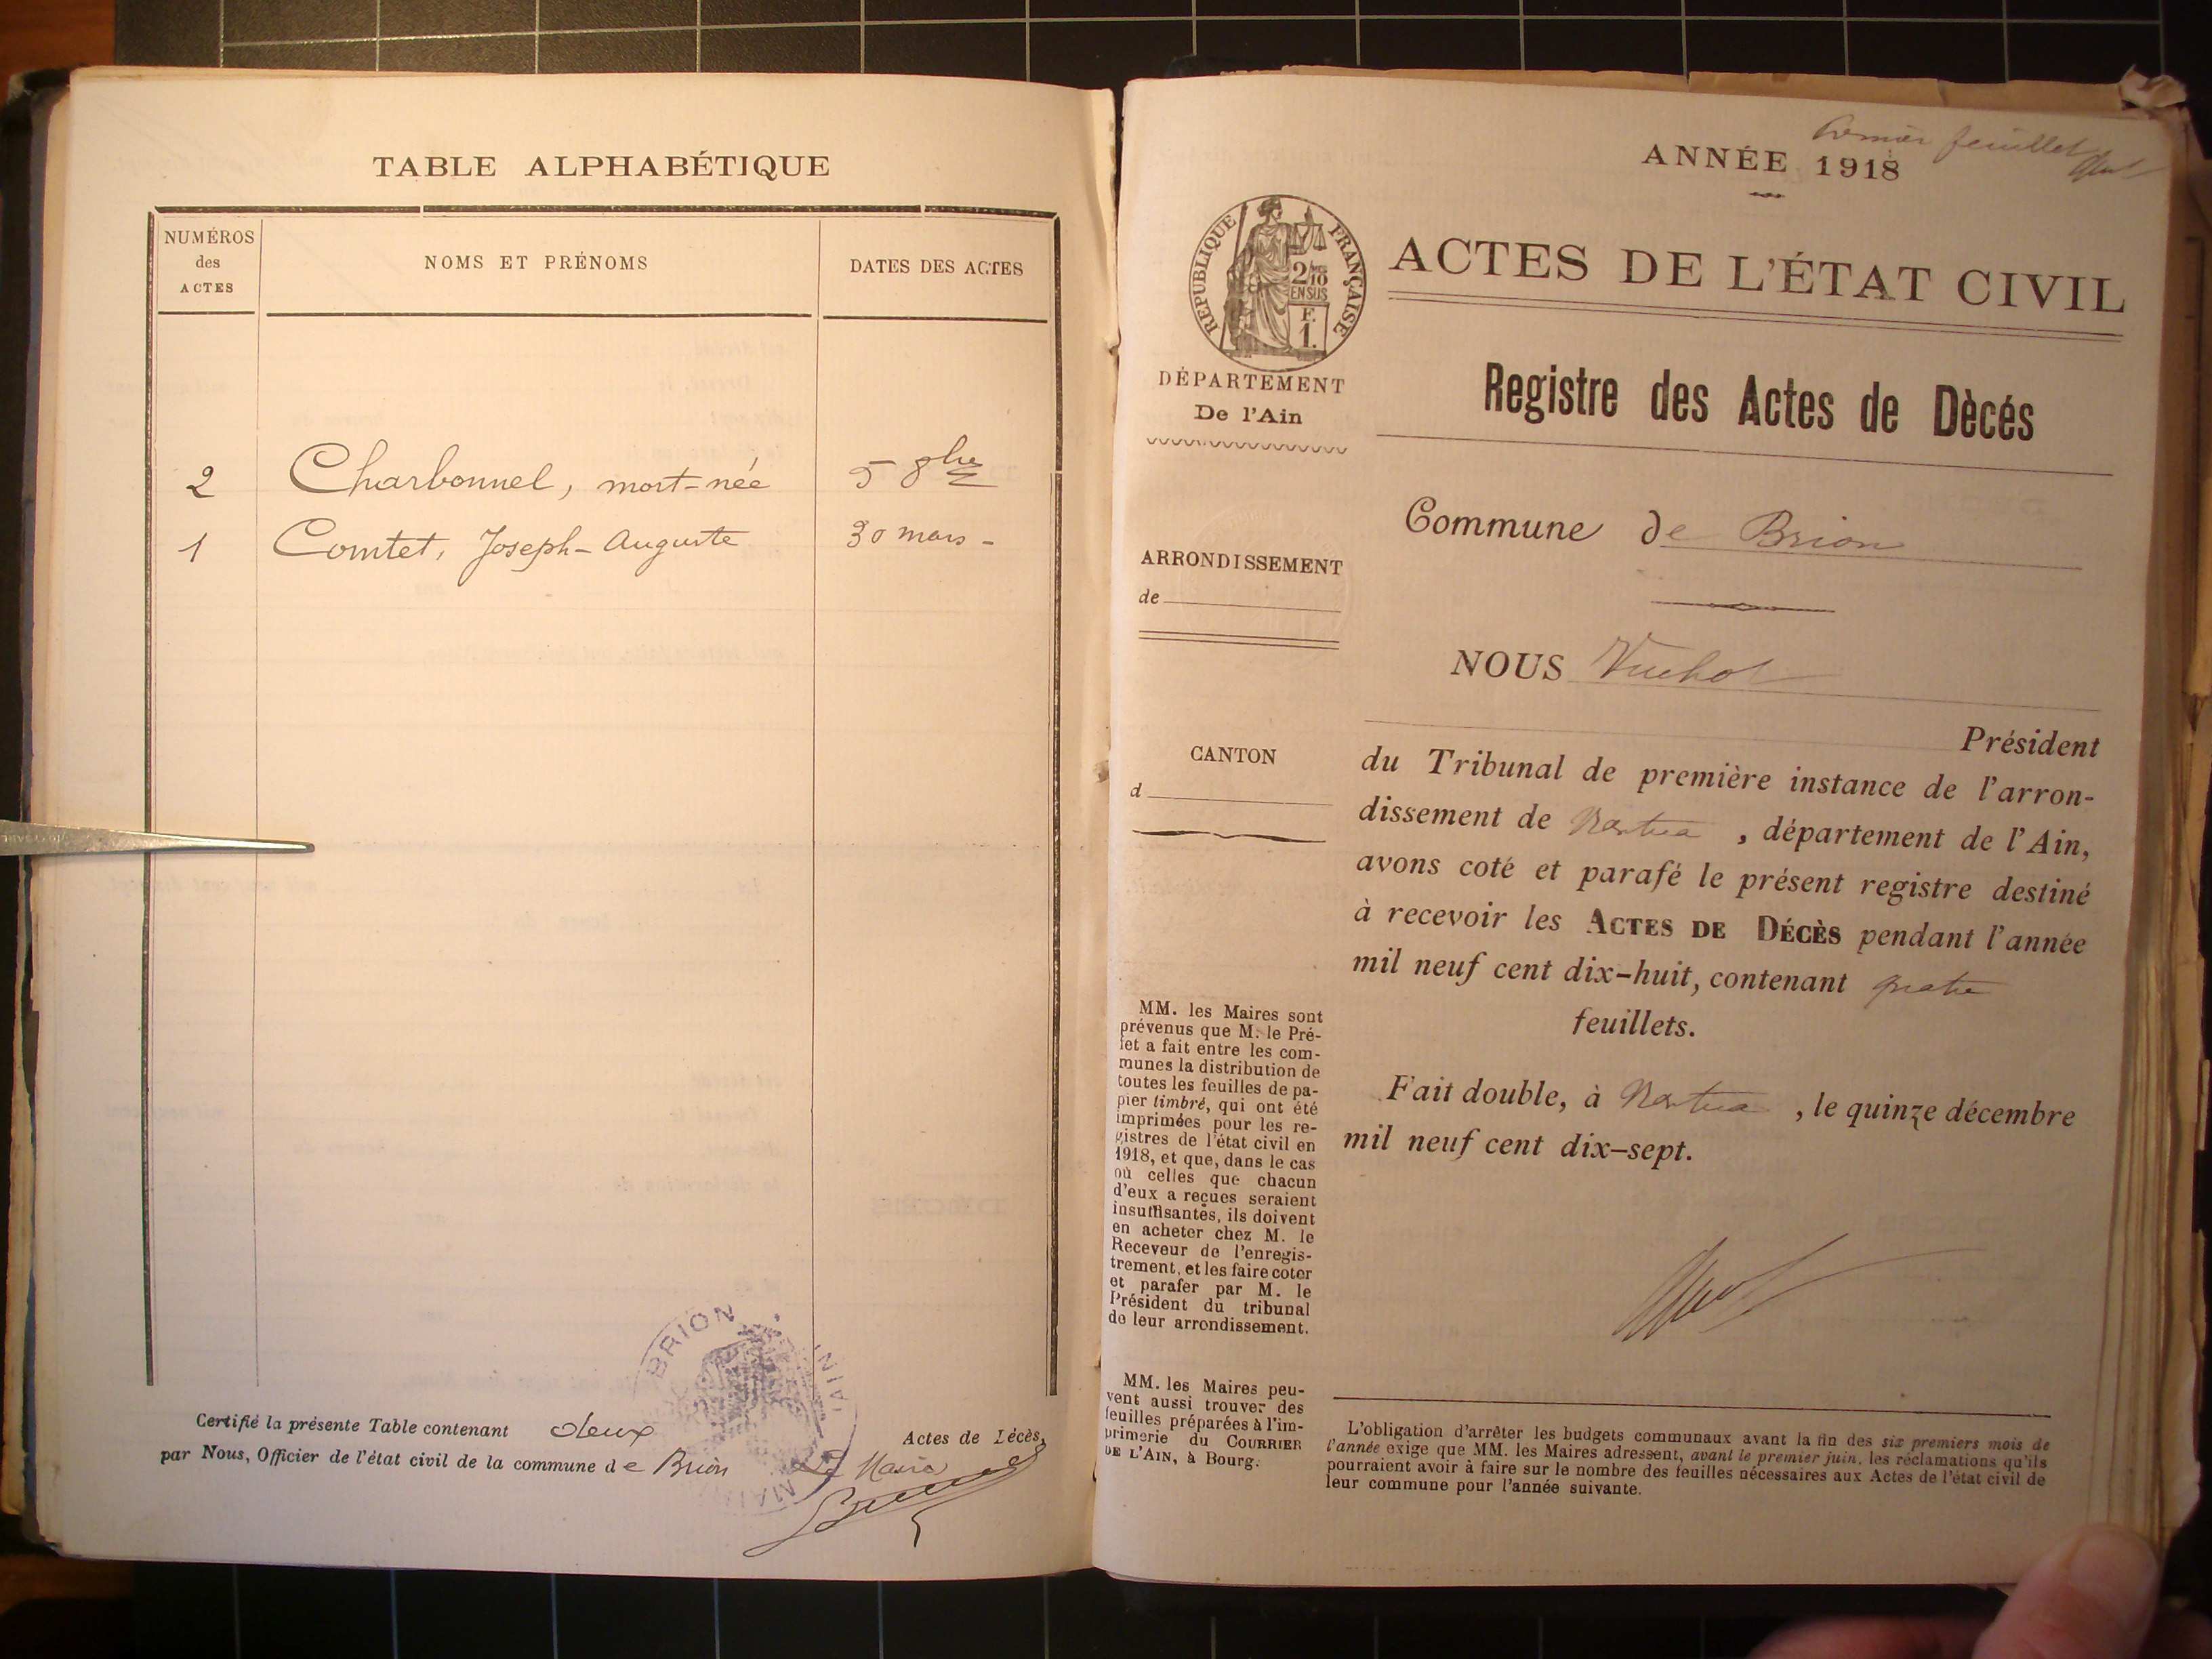 TABLE ALPHABÉTIQUE
NUMÉROS
des
ACTES
NOMS ET PRÉNOMS
DATES DES ACTES
2 Charbonnel, mort-née 5 8bre
1 Comtet, Joseph-Auguste 30 mars -
BRION
AIN
MAIRIE
Certifié la présente Table contenant deux Actes de Décès,
par Nous, Officier de l'état civil de la commune de Brion Le Maire
Premier feuillet
ANNÉE 1918
RÉPUBLIQUE FRANÇAISE
2/10
EN SUS
F.
1.
ACTES DE L'ÉTAT CIVIL
DÉPARTEMENT
De l'Ain
Registre des Actes de Dècés
Commune de Brion
ARRONDISSEMENT
de
NOUS
Président
CANTON
d
du Tribunal de première instance de l'arron-
dissement de Nantua, département de l'Ain,
avons coté et parafé le présent registre destiné
à recevoir les ACTES DE DÉCÈS pendant l'année
mil neuf cent dix-huit, contenant quatre
feuillets.
Fait double, à Nantua, le quinze décembre
mil neuf cent dix-sept.
MM. les Maires sont
prévenus que M. le Pré-
fet a fait entre les com-
munes la distribution de
toutes les feuilles de pa-
pier timbré, qui ont été
imprimées pour les re-
gistres de l'état civil en
1918, et que, dans le cas
où celles que chacun
d'eux a reçues seraient
insuffisantes, ils doivent
en acheter chez M. le
Receveur de l'enregis-
trement, et les faire coter
et parafer par M. le
Président du tribunal
de leur arrondissement.
MM. les Maires peu-
vent aussi trouver des
feuilles préparées à l'im-
primerie du COURRIER
DE L'AIN, à Bourg.
L'obligation d'arrêter les budgets communaux avant la fin des six premiers mois de
l'année exige que MM. les Maires adressent, avant le premier juin, les réclamations qu'ils
pourraient avoir à faire sur le nombre des feuilles nécessaires aux Actes de l'état civil de
leur commune pour l'année suivante.